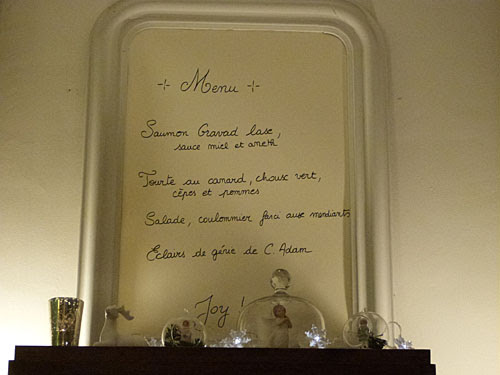 Menu
Saumon Gravad lase,
sauce miel et aneth
Tourte au canard, choux vert,
cèpes et pommes
Salade, coulommier farci aux mendiants
Eclairs de génie de C. Adam
Joy !